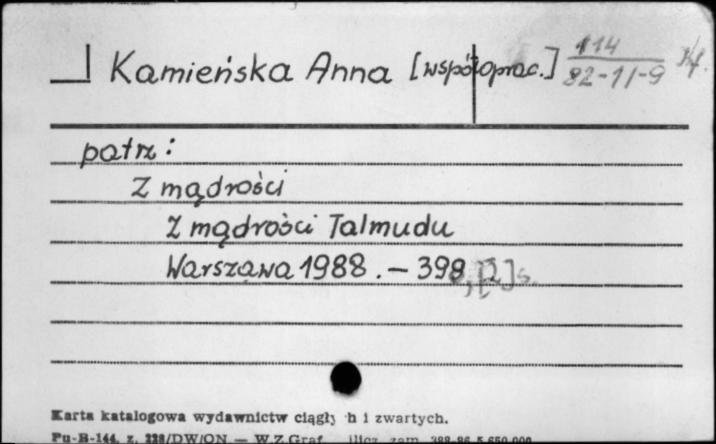 Kamieńska Anna [współoprac.] 114
82-11-9
patrz:
Z mądrości
Z mądrości Talmudu
Warszawa 1988. – 398, [2] s.
Karta katalogowa wydawnictw ciągły h i zwartych.
Pu-B-144, z. 228/DW/ON — W.Z.Graf. zam. 388-86 5.650.000